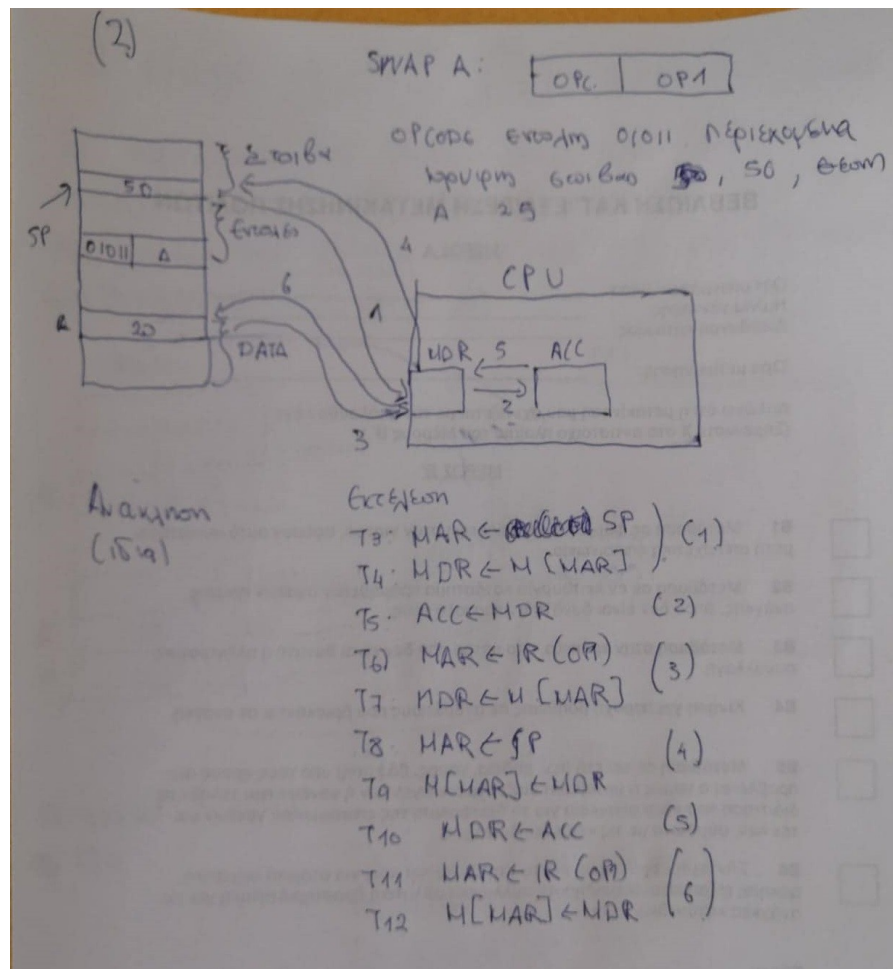 (2)
SWAP A: OPC. OP1
OPCODE εντολη 01011 περιεχομενα
κορυφη στοιβασ , 50, θεση
A 20
Στοιβα
50
SP
Εντολεσ
01011 A
A
20
DATA
6
4
1
3
CPU
MDR 5 ACC
2
Ανακληση
(ιδια)
Εκτελεση
T3: MAR ← SP (1)
T4. MDR ← M[MAR]
T5. ACC ← MDR (2)
T6) MAR ← IR(OP1) (3)
T7 MDR ← M[MAR]
T8. MAR ← SP (4)
T9 M[MAR] ← MDR
T10 MDR ← ACC (5)
T11 MAR ← IR(OP1) (6)
T12 M[MAR] ← MDR